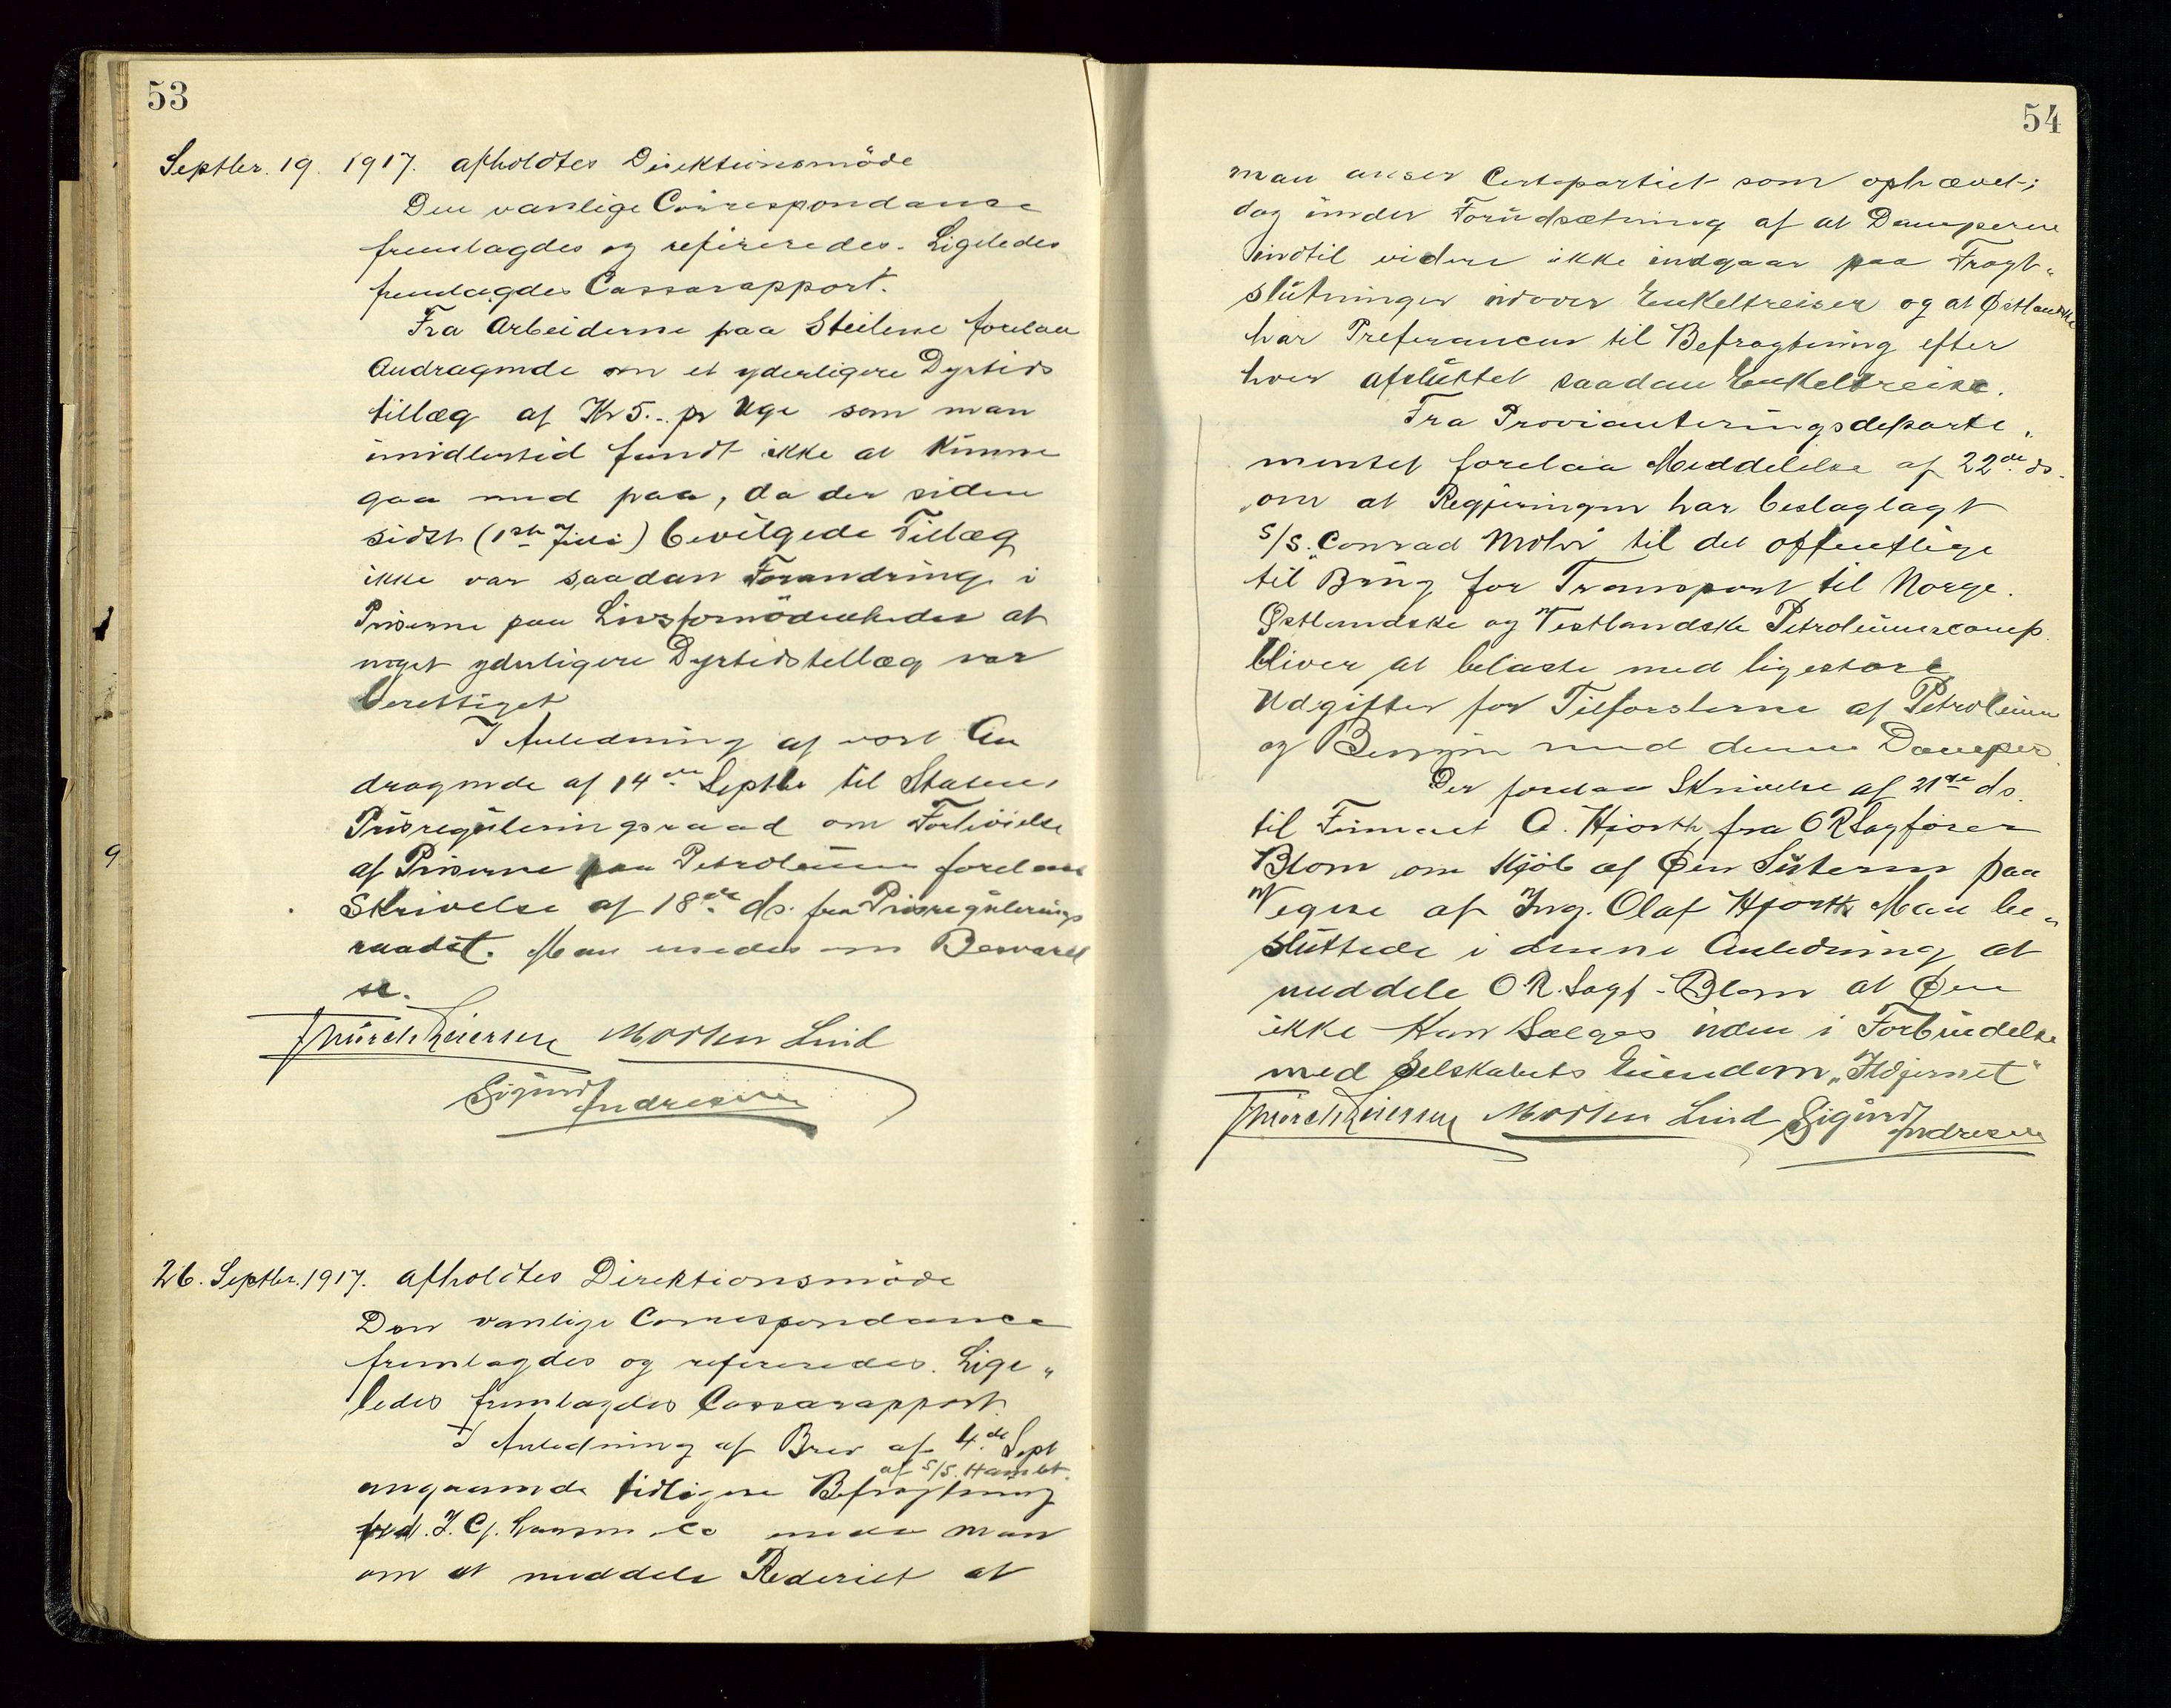 53
Septbr. 19. 1917. afholdtes Direktionsmöde
Den vanlige Correspondance
fremlagdes og refereredes. Ligeledes
fremlagdes Cassarapport.
Fra Arbeiderne paa Steilene forelaa
Andragende om et yderligere Dyrtids
tillæg af Kr 5.- pr Uge som man
imidlertid fandt ikke at kunne
gaa med paa, da der siden
sidst (1ste Juli) bevilgede Tillæg
ikke var saadan Forandring i
Priserne paa Livsfornödenheder at
noget yderligere Dyrtidstillæg var
berettiget
I Anledning af vort An
dragende af 14de Septbr til Statens
Prisreguleringsraad om Forhöielse
af Priserne paa Petroleum forelaa
Skrivelse af 18de ds. fra Prisregulerings
raadet. Man enedes om Besvarel
se.
Mörch Reiersen Morten Lind
Sigurd Andresen
26. Septbr. 1917. afholdtes Direktionsmöde
Den vanlige Correspondance
fremlagdes og refereredes. Lige„
ledes fremlagdes Cassarapport.
I Anledning af Brev af 4de Sept
af S/S. Hamlet.
angaaende tidligere Befragtning
fred. I. Cf. & Co enedes man
om at meddele Rederiet at
9
54
man anser Certepartiet som ophævet;
dog under Forudsætning af at Damperne
indtil videre ikke indgaar paa Fragt„
slutninger udover Enkeltreiser og at Østlandske
har Preferancen til Befragtning efter
hver afsluttet saadan Enkeltreise.
Fra Provianteringsdeparte„
mentet forelaa Meddelelse af 22de ds.
om at Regjeringen har beslaglagt
S/S. „Conrad Mohr" til det offentlige
til Brug for Transport til Norge.
Østlandske og Vestlandske Petroleumscomp.
bliver at belaste med ligestore
Udgifter for Tilførslerne af Petroleum
og Benzin med denne Damper.
Der forelaa Skrivelse af 21de ds.
til Firmaet O. Hjorth fra ORSagfører
Blom om Kjöb af Øen Søstern paa
Vegne af Ing. Olaf Hjorth. Man be„
sluttede i denne Anledning at
meddele O R. Sagf. Blom at Øen
ikke kan sælges uden i Forbindelse
med Selskabets Eiendom „Ildjernet"
Mörch Reiersen Morten Lind Sigurd Andresen